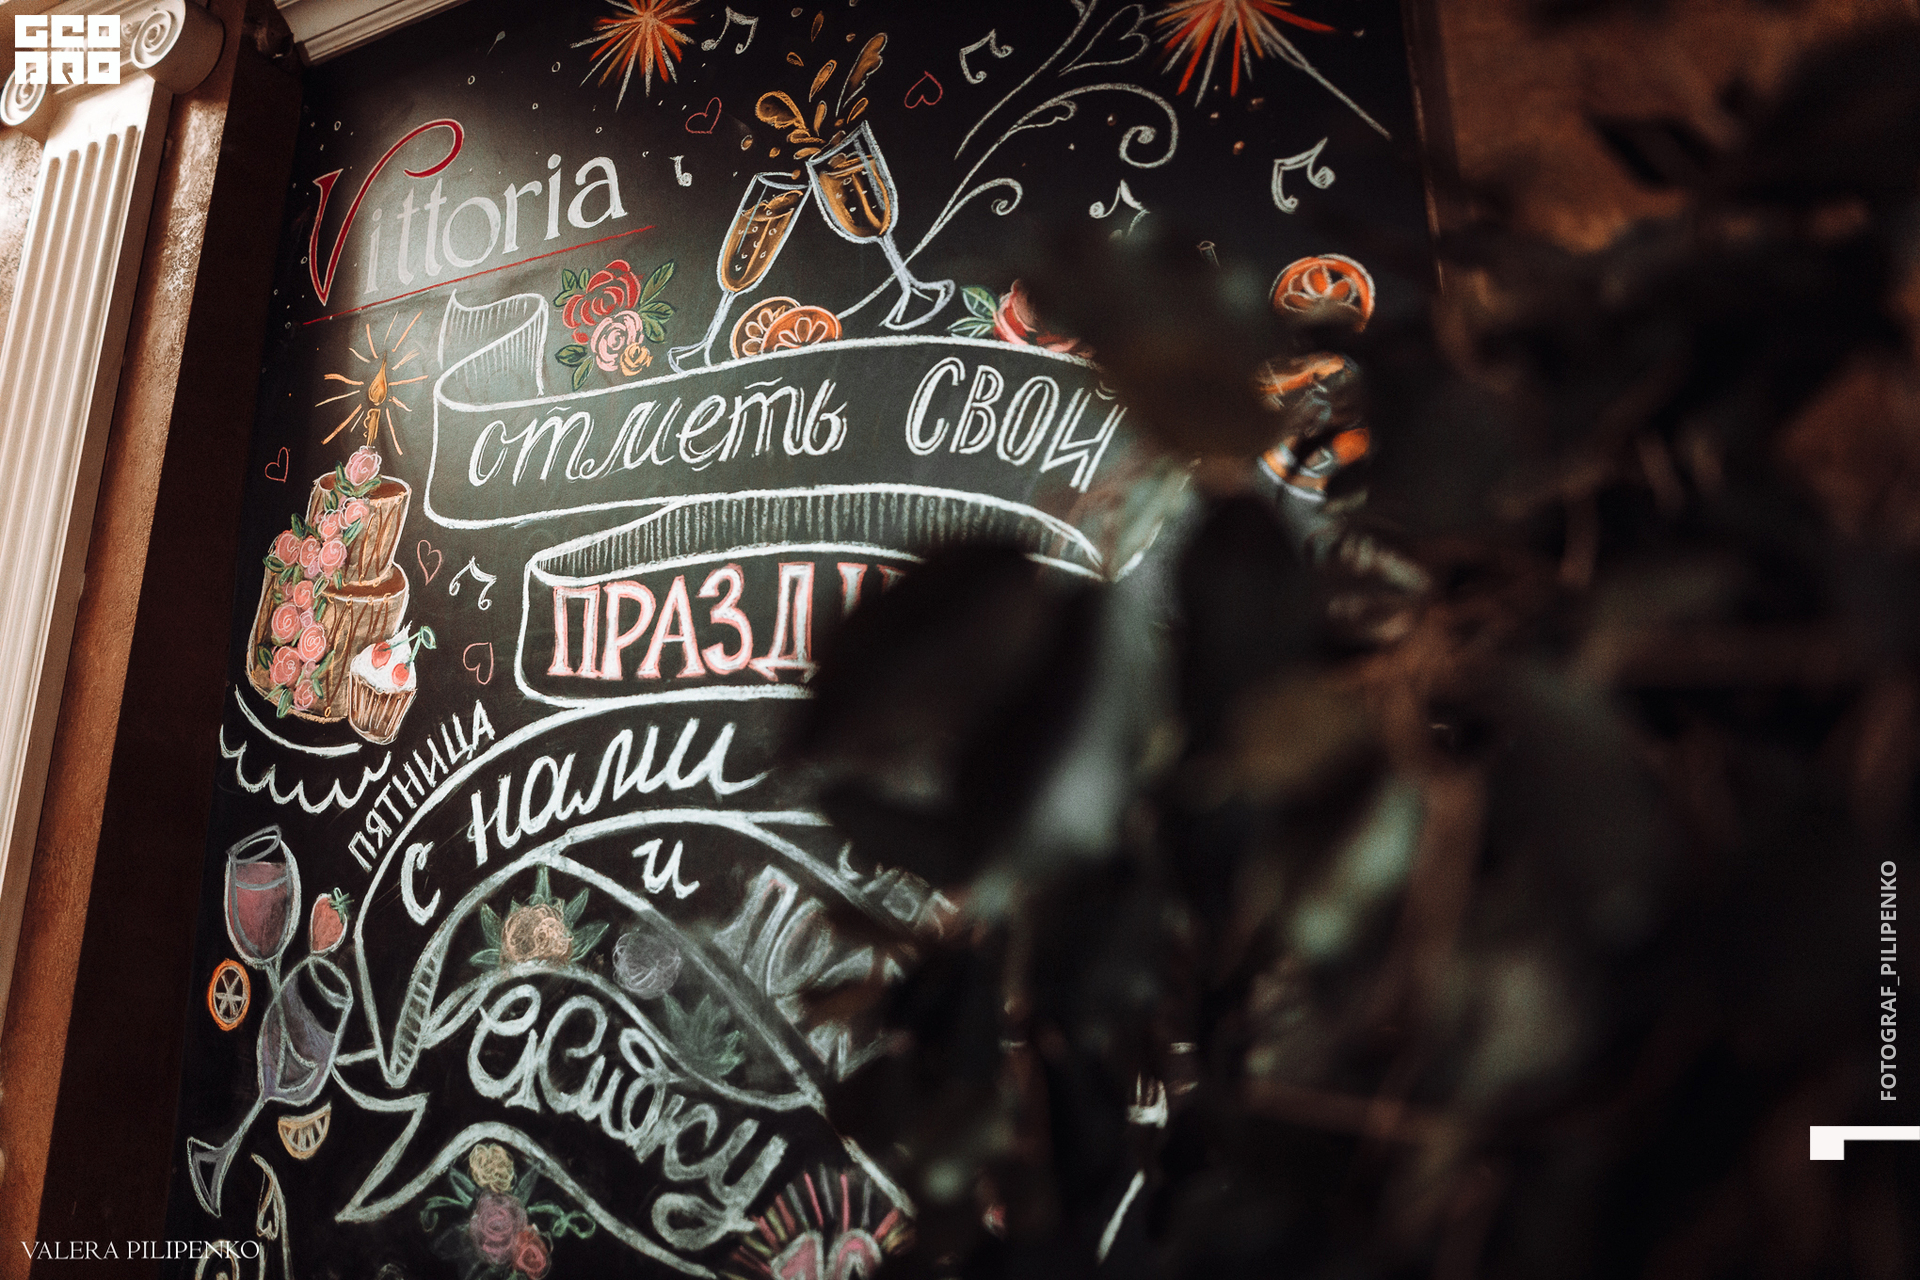 GEO
Vittoria
отметь СВОЙ
ПРАЗД
ПЯТНИЦА
с нами
и
Скидку
FOTOGRAF_PILIPENKO
VALERA PILIPENKO